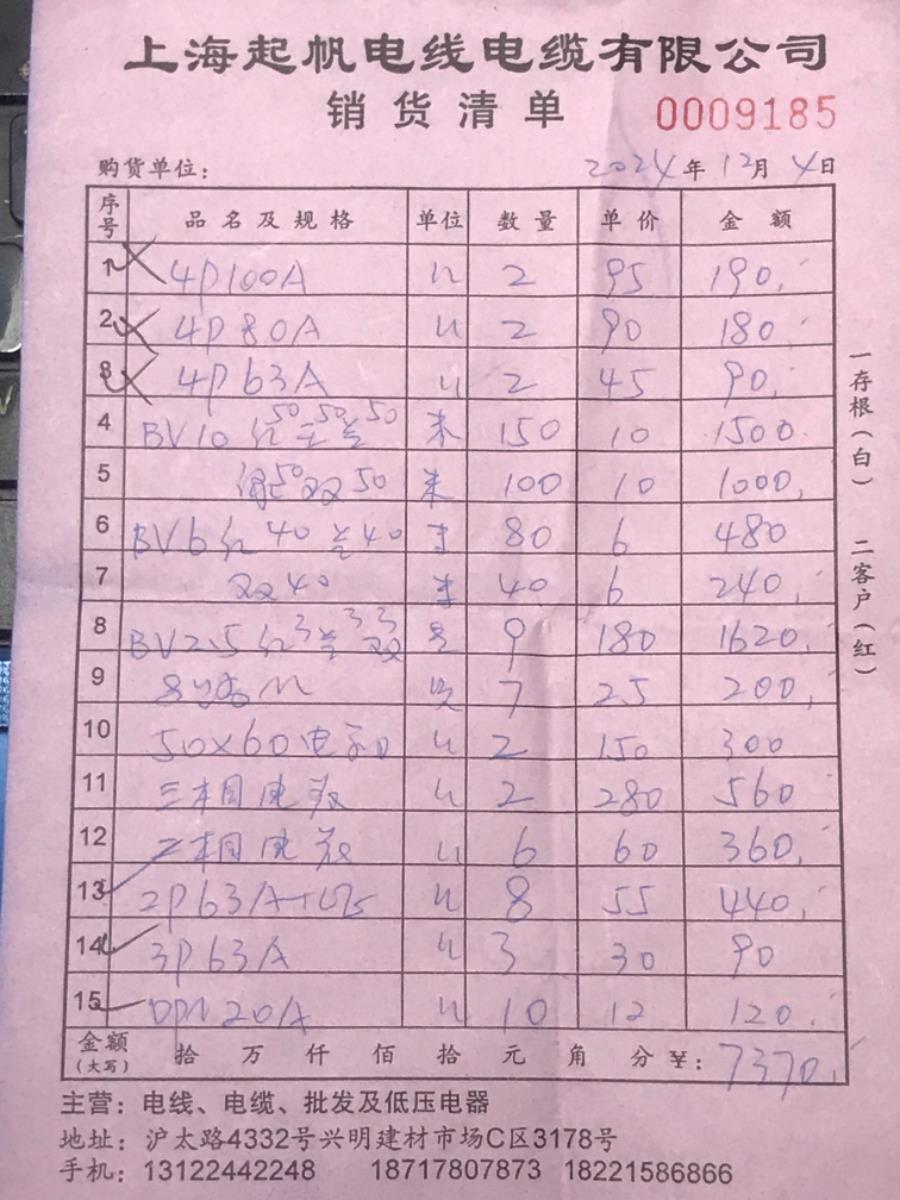 上海起帆电线电缆有限公司
销货清单 0009185
购货单位： 2024年12月4日
序号 品名及规格 单位 数量 单价 金额
1 4P100A 2 95 190
2 4P80A 2 90 180
3 4P63A 2 45 90
4 BV10 红50 50 50 米 150 10 1500
5 50双50 米 100 10 1000
6 BV6红40 兰40 80 6 480
7 双40 40 6 240
8 BV2.5红3兰3双3 9 180 1620
9 7 25 200
10 50×60电 2 150 300
11 三相电 2 280 560
12 二相电 6 60 360
13 2P63A+ 8 55 440
14 3P63A 3 30 90
15 DPN20A 10 12 120
金额（大写） 拾 万 仟 佰 拾 元 角 分 ¥：7370
一存根（白） 二客户（红）
主营：电线、电缆、批发及低压电器
地址：沪太路4332号兴明建材市场C区3178号
手机：13122442248 18717807873 18221586866